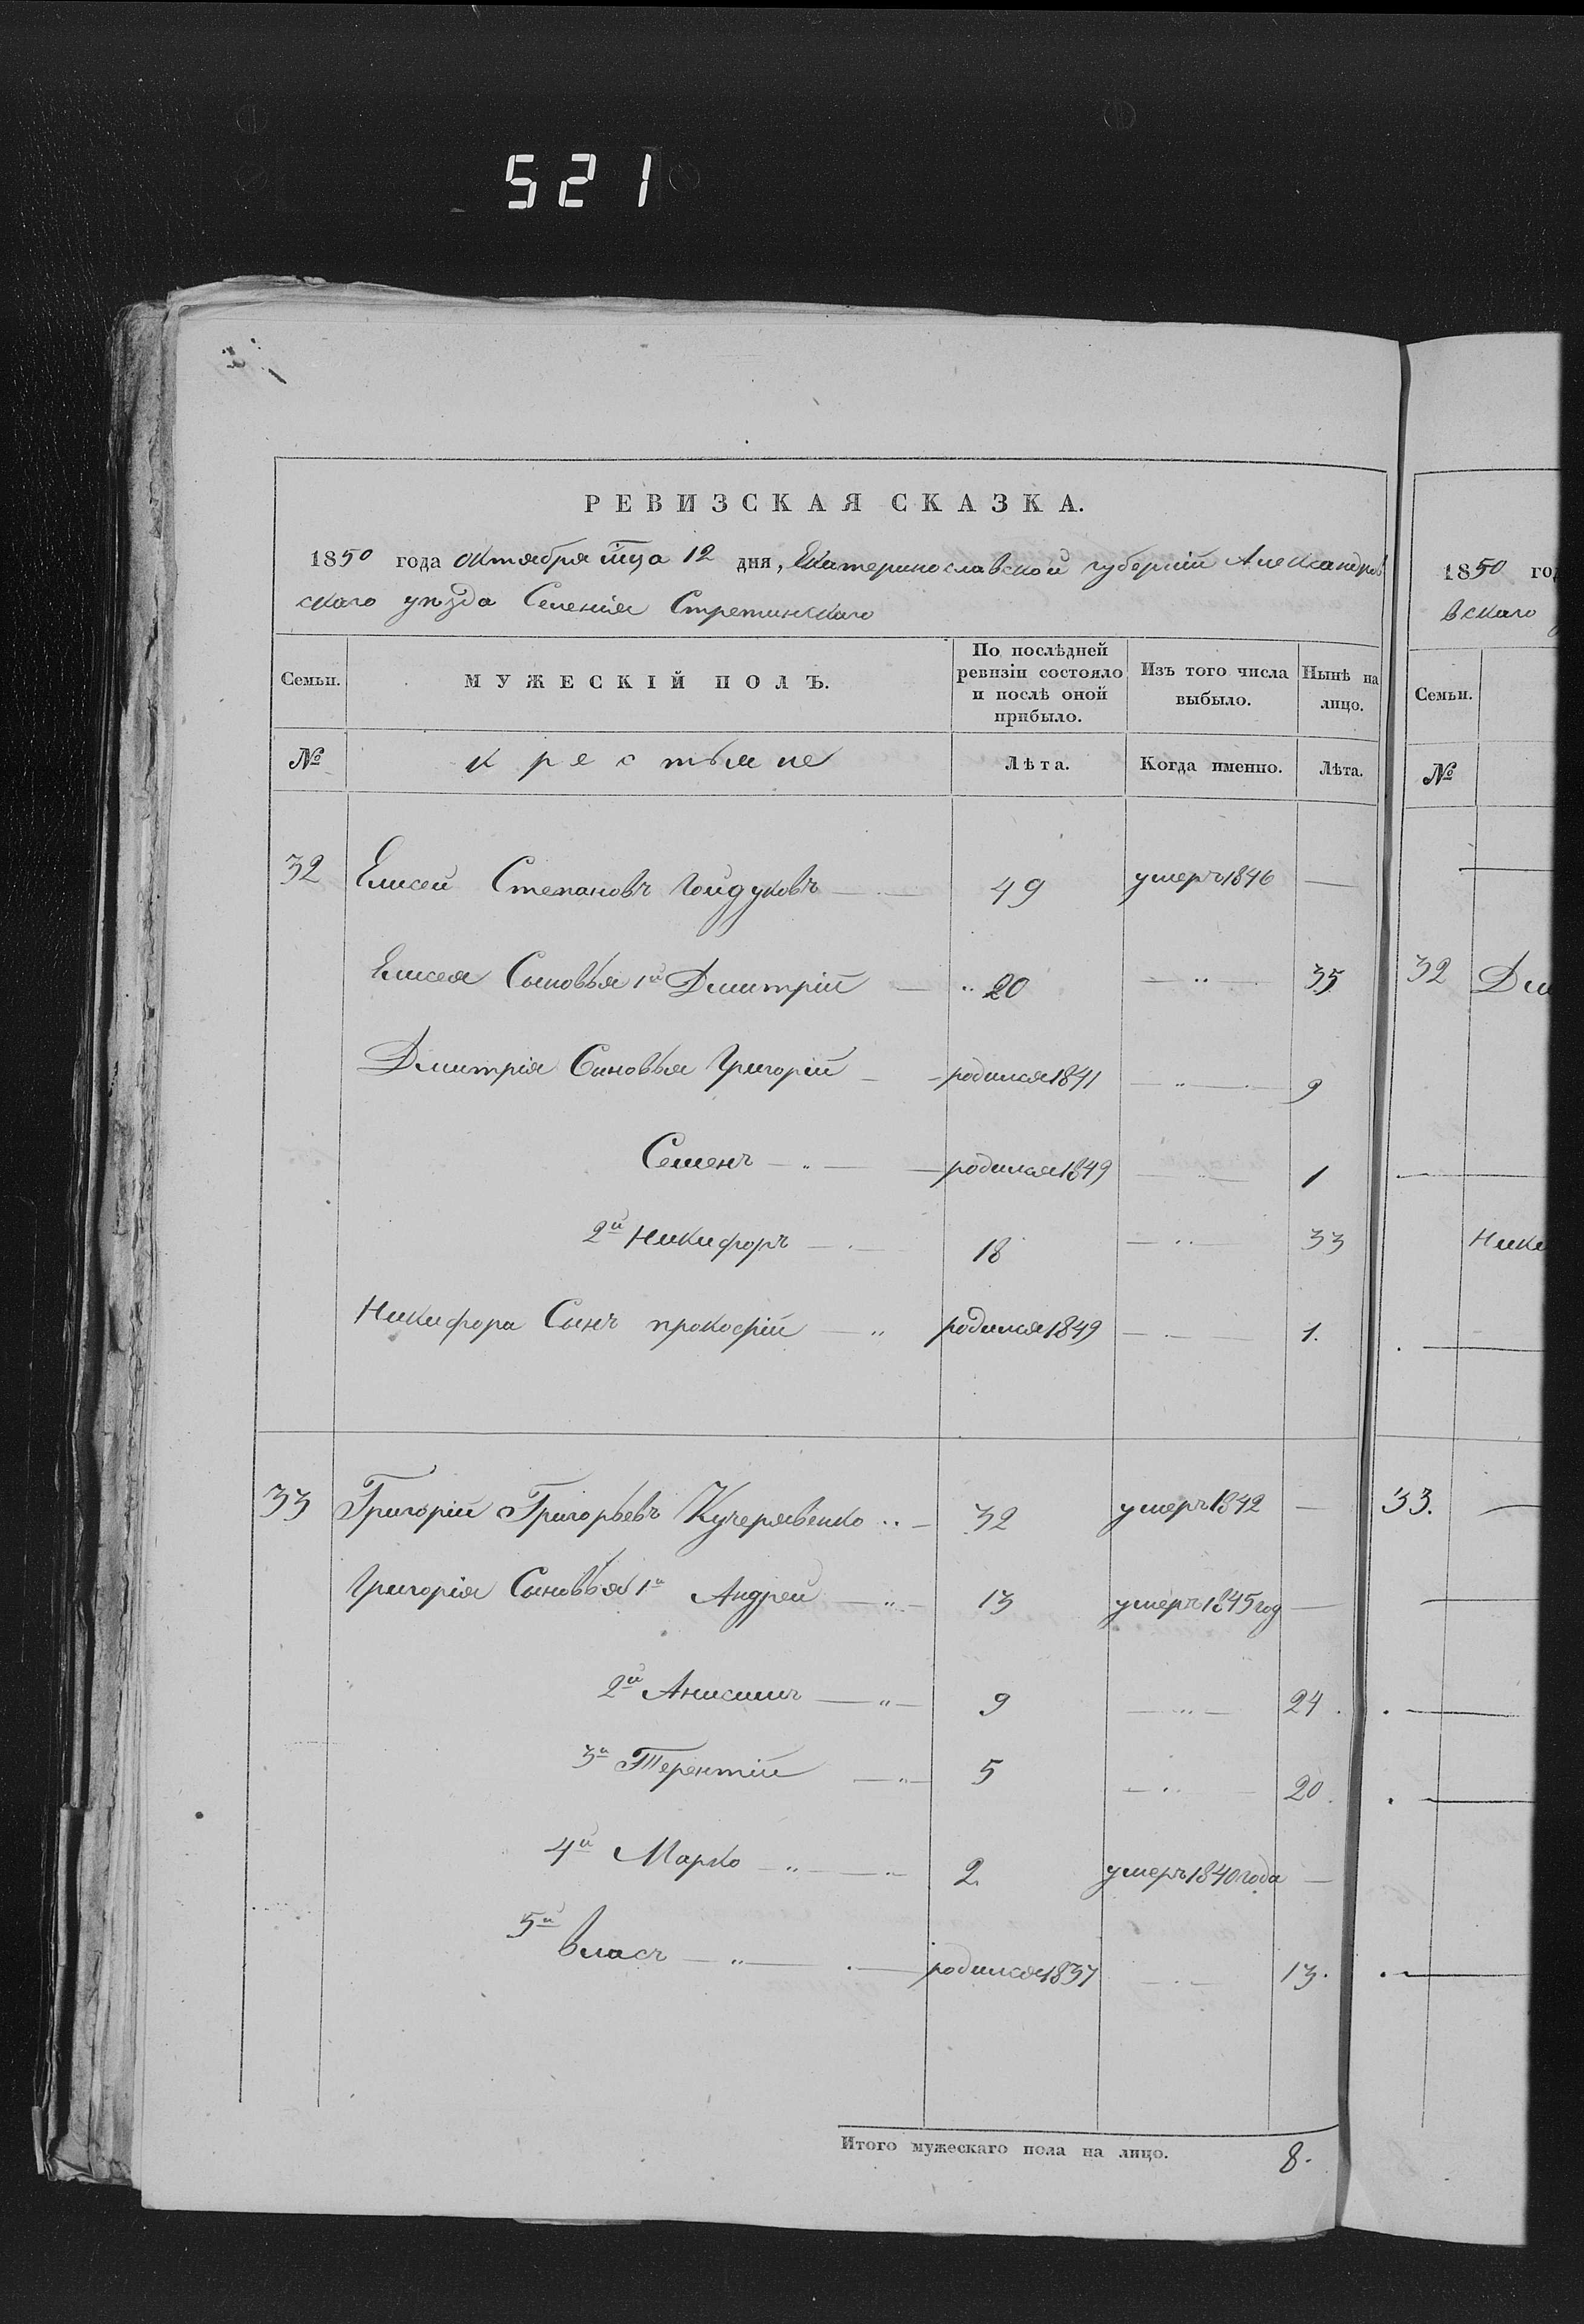 521
РЕВИЗСКАЯ СКАЗКА.
1850 года октября мца 12 дня, Екатеринославской губерніи Александров
скаго уезда Селенія Стретинскаго
Семьи. МУЖЕСКІЙ ПОЛЪ. По послѣдней ревизіи состояло и послѣ оной прибыло. Изъ того числа выбыло. Нынѣ на лицо.
№ крестьяне Лѣта. Когда именно. Лѣта.
32 Елисей Степановъ Гойдуковъ 49 умеръ 1846 —
Елисея Сыновья 1й Дмитрій 20 — 35
Дмитрія Сыновья Григорій родился 1841 — 9
Семенъ родился 1849 — 1
2й Никифоръ 18 — 33
Никифора Сынъ прокофій родился 1849 — 1.
33 Григорій Григорьевъ Кучерявенко 32 умеръ 1842 —
Григорія Сыновья 1й Андрей 13 умеръ 1845 год —
2й Анисимъ 9 — 24.
3й Терентій 5 — 20.
4й Марко 2. умеръ 1840 года —
5й Власъ родился 1837 — 13.
Итого мужескаго пола на лицо. 8.
1850 год
вскаго
Семьи.
№
32 Дм
Ники
33.